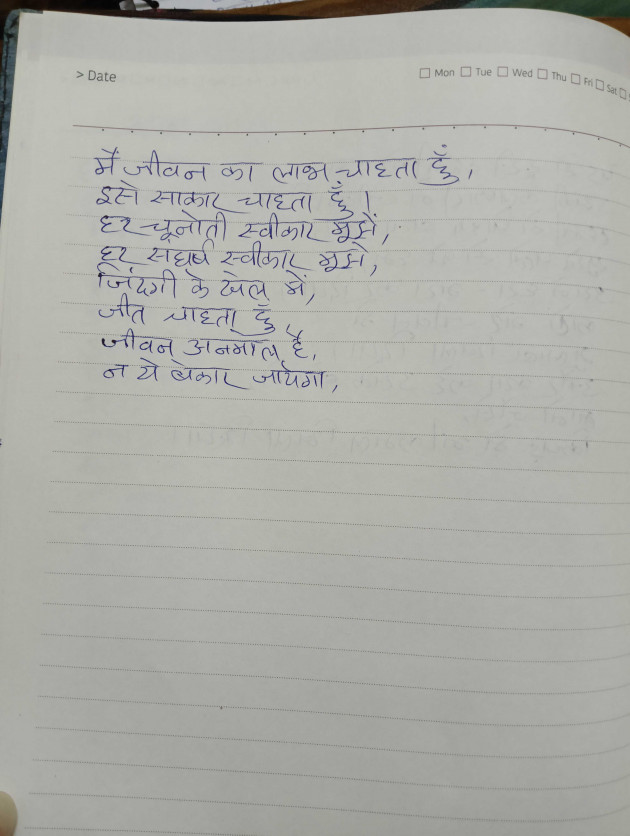 > Date
Mon Tue Wed Thu Fri Sat
में जीवन का लाभ चाहता हूँ,
इसे साकार चाहता हूँ।
हर चूनोती स्वीकार मूझे,
हर संघर्ष स्वीकार मूझे,
जिंदगी के खेल में,
जीत चाहता हूँ,
जीवन अनमोल है,
न ये बेकार जायेगा,